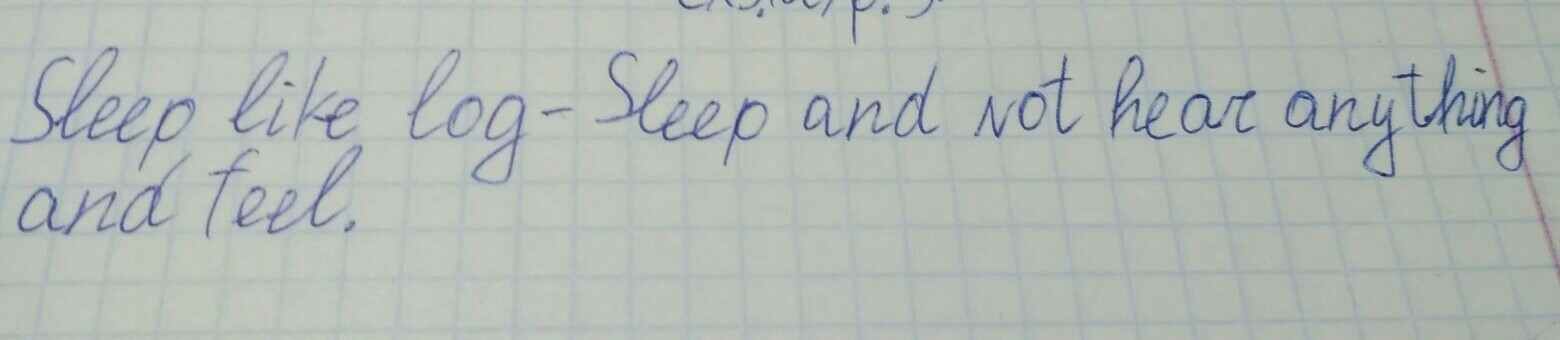 Sleep like log - Sleep and not hear anything
and feel.